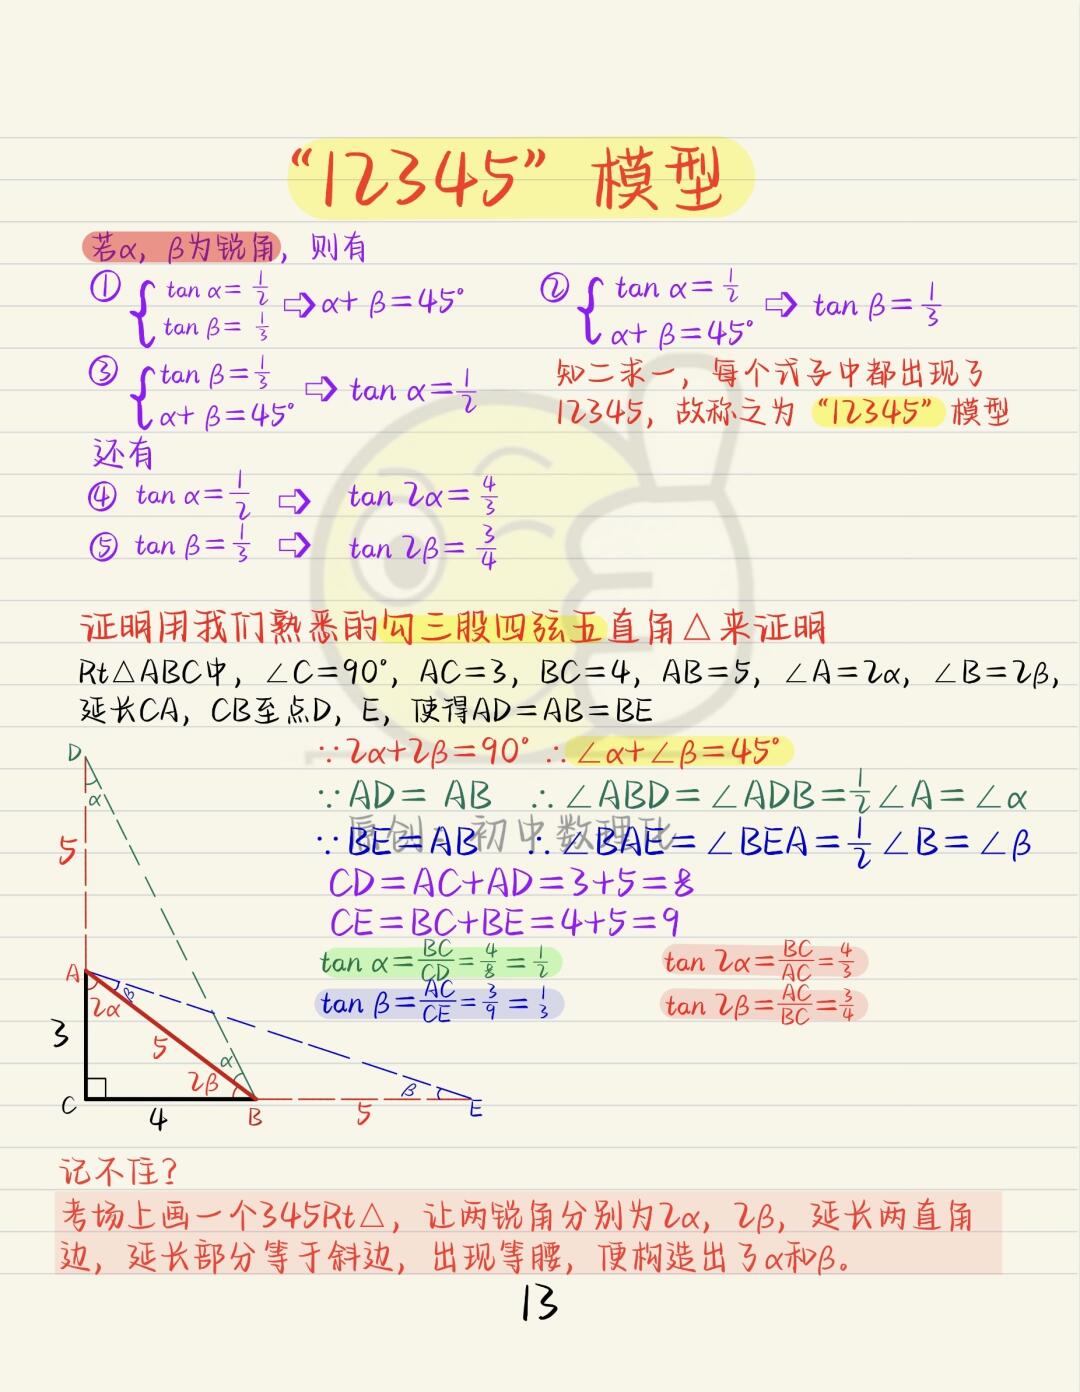 “12345”模型
若α，β为锐角，则有
① { tan α=1/2  tan β=1/3 ⇨ α+β=45°
② { tan α=1/2  α+β=45° ⇨ tan β=1/3
③ { tan β=1/3  α+β=45° ⇨ tan α=1/2
知二求一，每个式子中都出现了
12345，故称之为“12345”模型
还有
④ tan α=1/2 ⇨ tan 2α=4/3
⑤ tan β=1/3 ⇨ tan 2β=3/4
证明用我们熟悉的勾三股四弦五直角△来证明
Rt△ABC中，∠C=90°，AC=3，BC=4，AB=5，∠A=2α，∠B=2β，
延长CA，CB至点D，E，使得AD=AB=BE
∵2α+2β=90° ∴∠α+∠β=45°
∵AD=AB ∴∠ABD=∠ADB=1/2∠A=∠α
原创：初中数理化
∵BE=AB ∴∠BAE=∠BEA=1/2∠B=∠β
CD=AC+AD=3+5=8
CE=BC+BE=4+5=9
tan α=BC/CD=4/8=1/2 tan 2α=BC/AC=4/3
tan β=AC/CE=3/9=1/3 tan 2β=AC/BC=3/4
D
α
5
A
2α β
3
5
2β α
β
C
4
B
5
E
记不住？
考场上画一个345Rt△，让两锐角分别为2α，2β，延长两直角
边，延长部分等于斜边，出现等腰，便构造出了α和β。
13